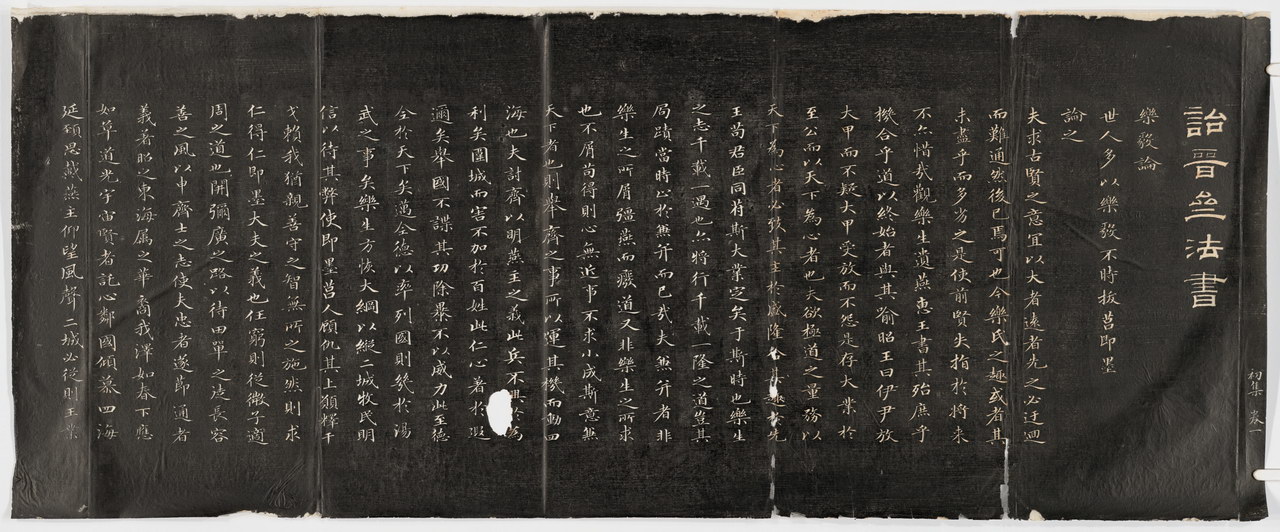 初集 卷一
詒晉齋法書
樂毅論
世人多以樂毅不時拔莒即墨
論之
夫求古賢之意宜以大者遠者先之必迂迴
而難通然後已焉可也今樂氏之趣或者其
未盡乎而多劣之是使前賢失指於將來
不亦惜哉觀樂生遺燕惠王書其殆庶乎
機合乎道以終始者與其喻昭王曰伊尹放
大甲而不疑大甲受放而不怨是存大業於
至公而以天下為心者也夫欲極道之量務以
天下為心者必致其主於盛隆合其趣於先
王苟君臣同符斯大業定矣于斯時也樂生
之志千載一遇也亦將行千載一隆之道豈其
局蹟當時止於兼并而已哉夫兼并者非
樂生之所屑彊燕而癈道又非樂生之所求
也不屑苟得則心無近事不求小成斯意兼
天下者也則舉齊之事所以運其機而動四
海也夫討齊以明燕主之義此兵不興於為
利矣圍城而害不加於百姓此仁心著於遐
邇矣舉國不謀其功除暴不以威力此至德
令於天下矣邁令德以率列國則幾於湯
武之事矣樂生方恢大綱以縱二城牧民明
信以待其弊使即墨莒人顧仇其上願釋干
戈賴我猶親善守之智無所之施然則求
仁得仁即墨大夫之義也任窮則從微子適
周之道也開彌廣之路以待田單之徒長容
善之風以申齊士之志使夫忠者遂節通者
義著昭之東海属之華裔我澤如春下應
如草道光宇宙賢者託心鄰國傾慕四海
延頸思戴燕主仰望風聲二城必從則王業